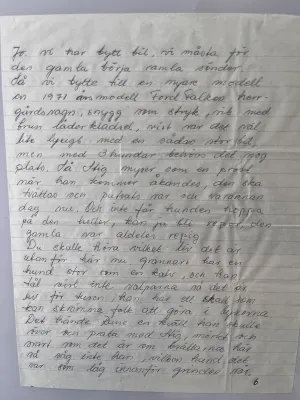 Jo, vi har bytt bil, vi måste för
den gamla börja ramla sönder.
Så vi bytte till en nyare modell
en 1971 års modell Ford Falcon herr-
gårdsvagn, snygg som stryk, vit med
brun läderklädsel, visst var det väl
lite lyxigt med en sådan stor bil,
men med 3 hundar behövs det nog
plats. Så Stig myser som en prost
när han kommer åkandes, den ska
tvättas och putsas var och varenda
dag nu. Och inte får hunden hoppa
på den heller, kan ju bli repor, den
gamla var alldeles repig
Du skulle höra vilket liv det är
utanför här nu grannarn har en
hund stor som en kalv, och han
tål visst inte valparna så det är
liv för kungen. han har ett skall som
kan skrämma folk att göra i byxorna
Det hände bara en kväll han skulle
över och prata med Stig, mörkt och
svart som det är om kvällarna här
så såg inte han vilken hund det
var som låg innanför grinden när
6